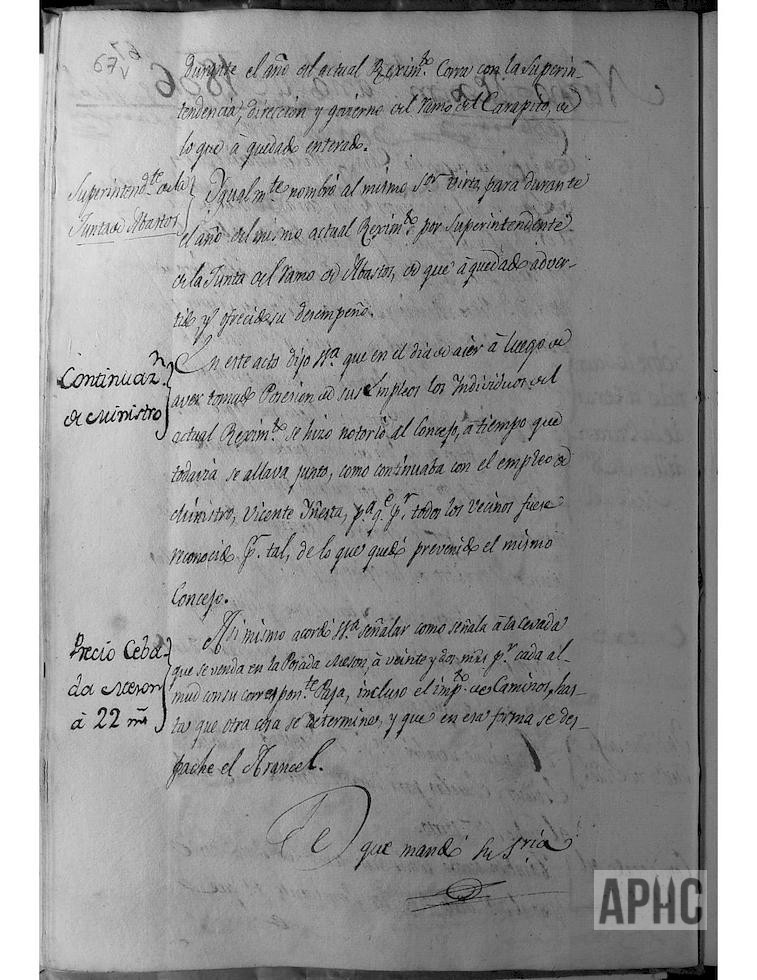 67v
67
durante el año del actual Reximto. Corra con la Superin-
tendencia, direccion y govierno del Ramo del Carapito, de
lo que à quedado enterado.
Superintendte. de la
Junta de Abastos
Ygualmte. nombró al mismo Sor. Virto, para durante
el año del mismo actual Reximto. por Superintendente
de la Junta del ramo de Abastos, de que à quedado adver-
tido y ofrecido su desempeño.
Continuazn.
de Ministro
En este acto dijo Sa. que en el dia de aier à luego de
aver tomado Posesion de sus Empleos los Individuos del
actual Reximto. se hizo notorio al Concejo, à tiempo que
todavia se allava junto, como continuaba con el empleo de
Ministro, Vicente Yñesta, pa. qe. pr. todos los vecinos fuese
reconocido pr. tal, de lo que quedó prevenido el mismo
Concejo.
Precio Ceba-
da Meson
à 22 mrs
Asimismo acordó Sa. señalar como señala à la cevada
que se venda en la Posada Meson, à veinte y dos mrs pr. cada al-
mud con su corresponte. Paja, incluso el impto. de Caminos, has-
ta que otra cosa se determine, y que en esa forma se des-
pache el Arancel.
que mandó su Sria
APHC